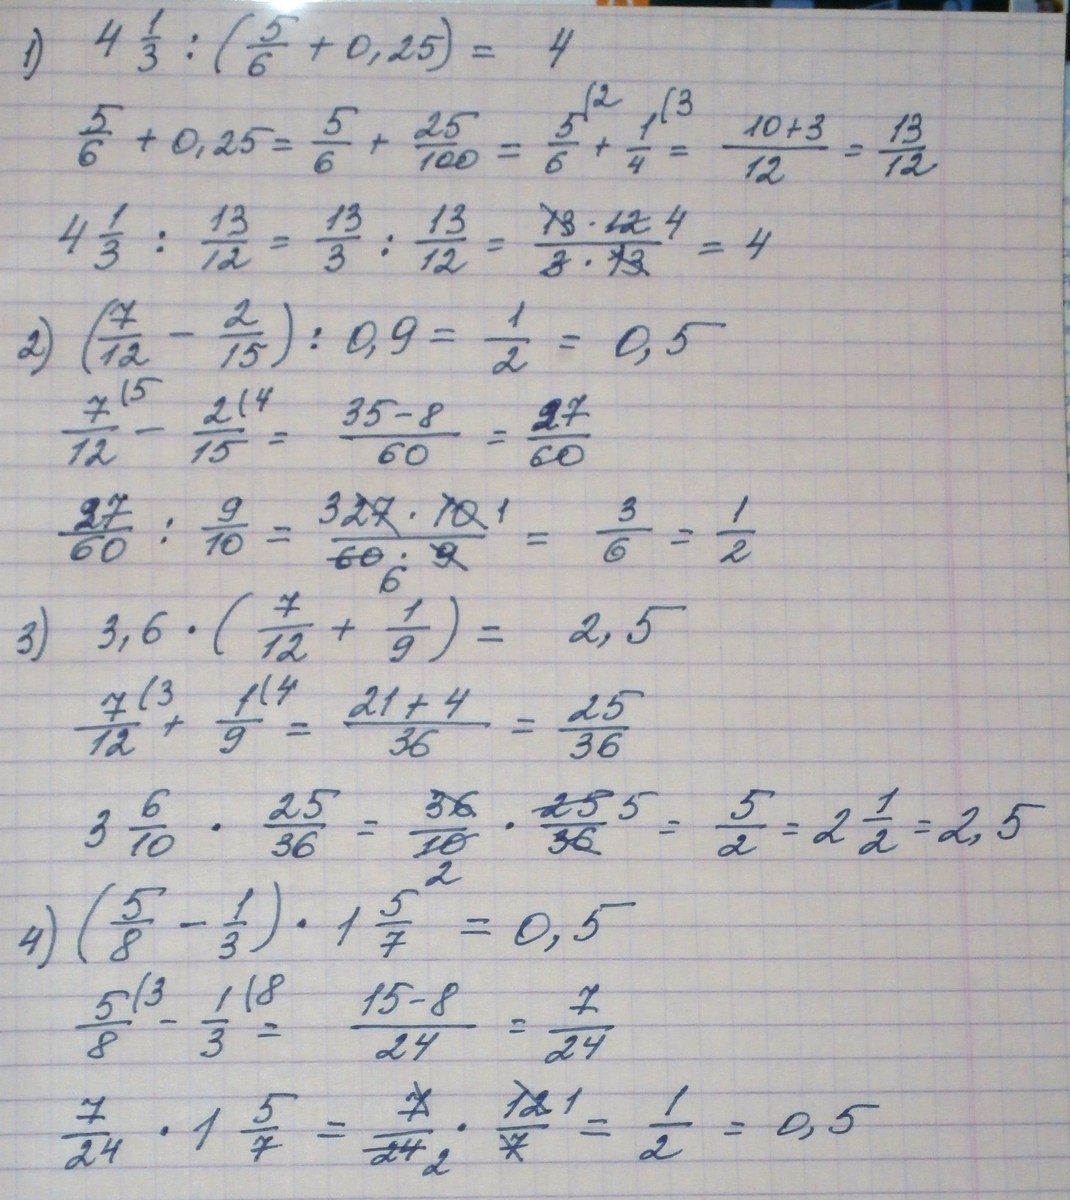 1) 4 1/3 : (5/6 + 0,25) = 4
5/6 + 0,25 = 5/6 + 25/100 = 5/6 (2 + 1/4 (3 = 10+3/12 = 13/12
4 1/3 : 13/12 = 13/3 : 13/12 = 13 · 12 4/3 · 13 = 4
2) (7/12 - 2/15) : 0,9 = 1/2 = 0,5
7/12 (5 - 2/15 (4 = 35-8/60 = 27/60
27/60 : 9/10 = 3 27 · 10 1/60 : 9 6 = 3/6 = 1/2
3) 3,6 · (7/12 + 1/9) = 2,5
7/12 (3 + 1/9 (4 = 21+4/36 = 25/36
3 6/10 · 25/36 = 36/10 2 · 25 5/36 = 5/2 = 2 1/2 = 2,5
4) (5/8 - 1/3) · 1 5/7 = 0,5
5/8 (3 - 1/3 (8 = 15-8/24 = 7/24
7/24 · 1 5/7 = 7/24 2 · 12 1/7 = 1/2 = 0,5